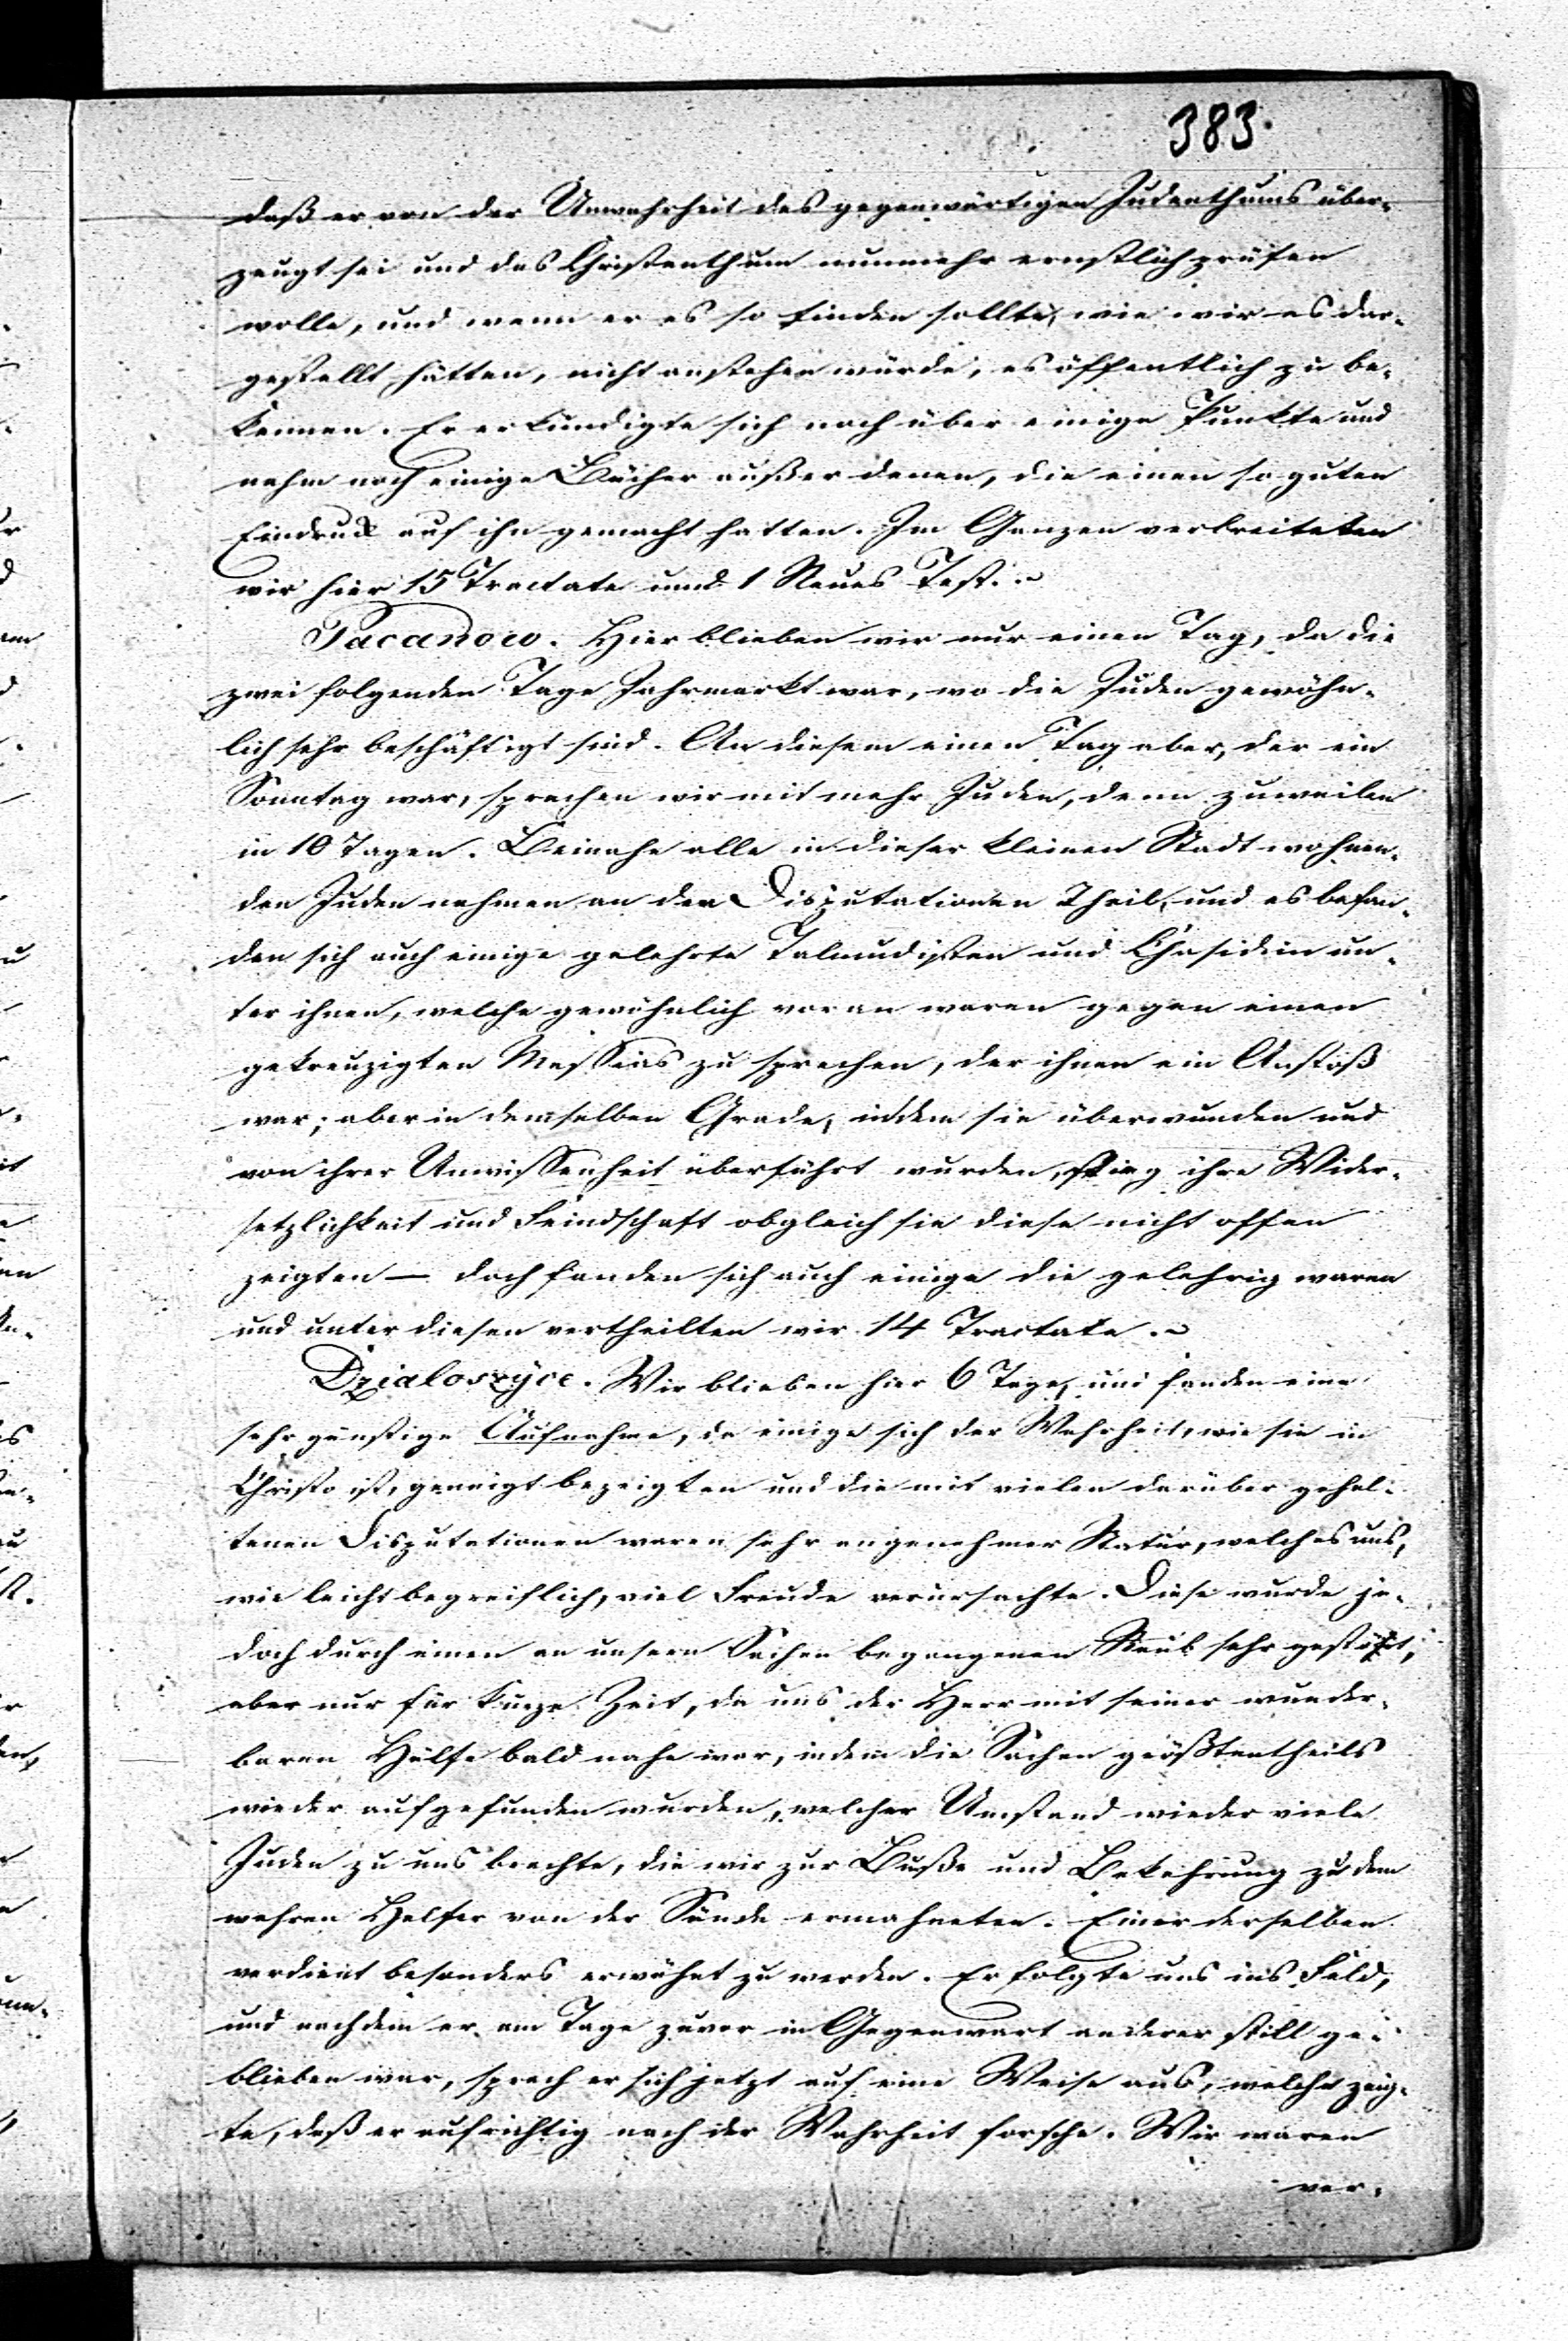 383.
daß er von der Unwahrheit des gegenwärtigen Judenthums über-
zeugt sei und das Christenthum nunmehr ernstlich prüfen
wolle, und wenn er es so finden sollte, wie wir es dar-
gestellt hätten, nicht anstehen würde, es öffentlich zu be-
kennen. Er erkundigte sich noch über einige Punkte und
nahm noch einige Bücher außer denen, die einen so guten
Eindruck auf ihn gemacht hatten. Im Ganzen verbreiteten
wir hier 15 Tractate und 1 Neues Test.
Pacanow. Hier blieben wir nur einen Tag, da die
zwei folgenden Tage Jahrmarkt war, wo die Juden gewöhn-
lich sehr beschäftigt sind. An diesem einen Tag aber, der ein
Sonntag war, sprachen wir mit mehr Juden, denn zuweilen
in 10 Tagen. Beinahe alle in dieser kleinen Stadt wohnen-
den Juden nahmen an den Disputationen Theil, und es befan-
den sich auch einige gelehrte Talmudisten und Chasidim un-
ter ihnen, welche gewöhnlich voran waren gegen einen
gekreuzigten Messias zu sprechen, der ihnen ein Anstoß
war; aber in demselben Grade, indem sie überwunden und
von ihrer Unwissenheit überführt wurden, stieg ihre Wider-
setzlichkeit und Feindschaft obgleich sie diese nicht offen
zeigten — doch fanden sich auch einige die gelehrig waren
und unter diesen vertheilten wir 14 Tractate.
Dzialoszyce. Wir blieben hier 6 Tage, und fanden eine
sehr günstige Aufnahme, da einige sich der Wahrheit, wie sie in
Christo ist, geneigt bezeigten und die mit vielen darüber gehal-
tenen Disputationen waren sehr angenehmer Natur, welches uns,
wie leicht begreiflich, viel Freude verursachte. Diese wurde je-
doch durch einen an unsern Sachen begangenen Raub sehr gestört,
aber nur für kurze Zeit, da uns der Herr mit seiner wunder-
baren Hülfe bald nahe war, indem die Sachen größtentheils
wieder aufgefunden wurden, welcher Umstand wieder viele
Juden zu uns brachte, die wir zur Buße und Bekehrung zu dem
wahren Helfer von der Sünde ermahnten. Einer derselben
verdient besonders erwähnt zu werden. Er folgte uns ins Feld,
und nachdem er am Tage zuvor in Gegenwart anderer still ge-
blieben war, sprach er sich jetzt auf eine Weise aus, welche zeig-
te, daß er aufrichtig nach der Wahrheit forsche. Wir waren
ver-